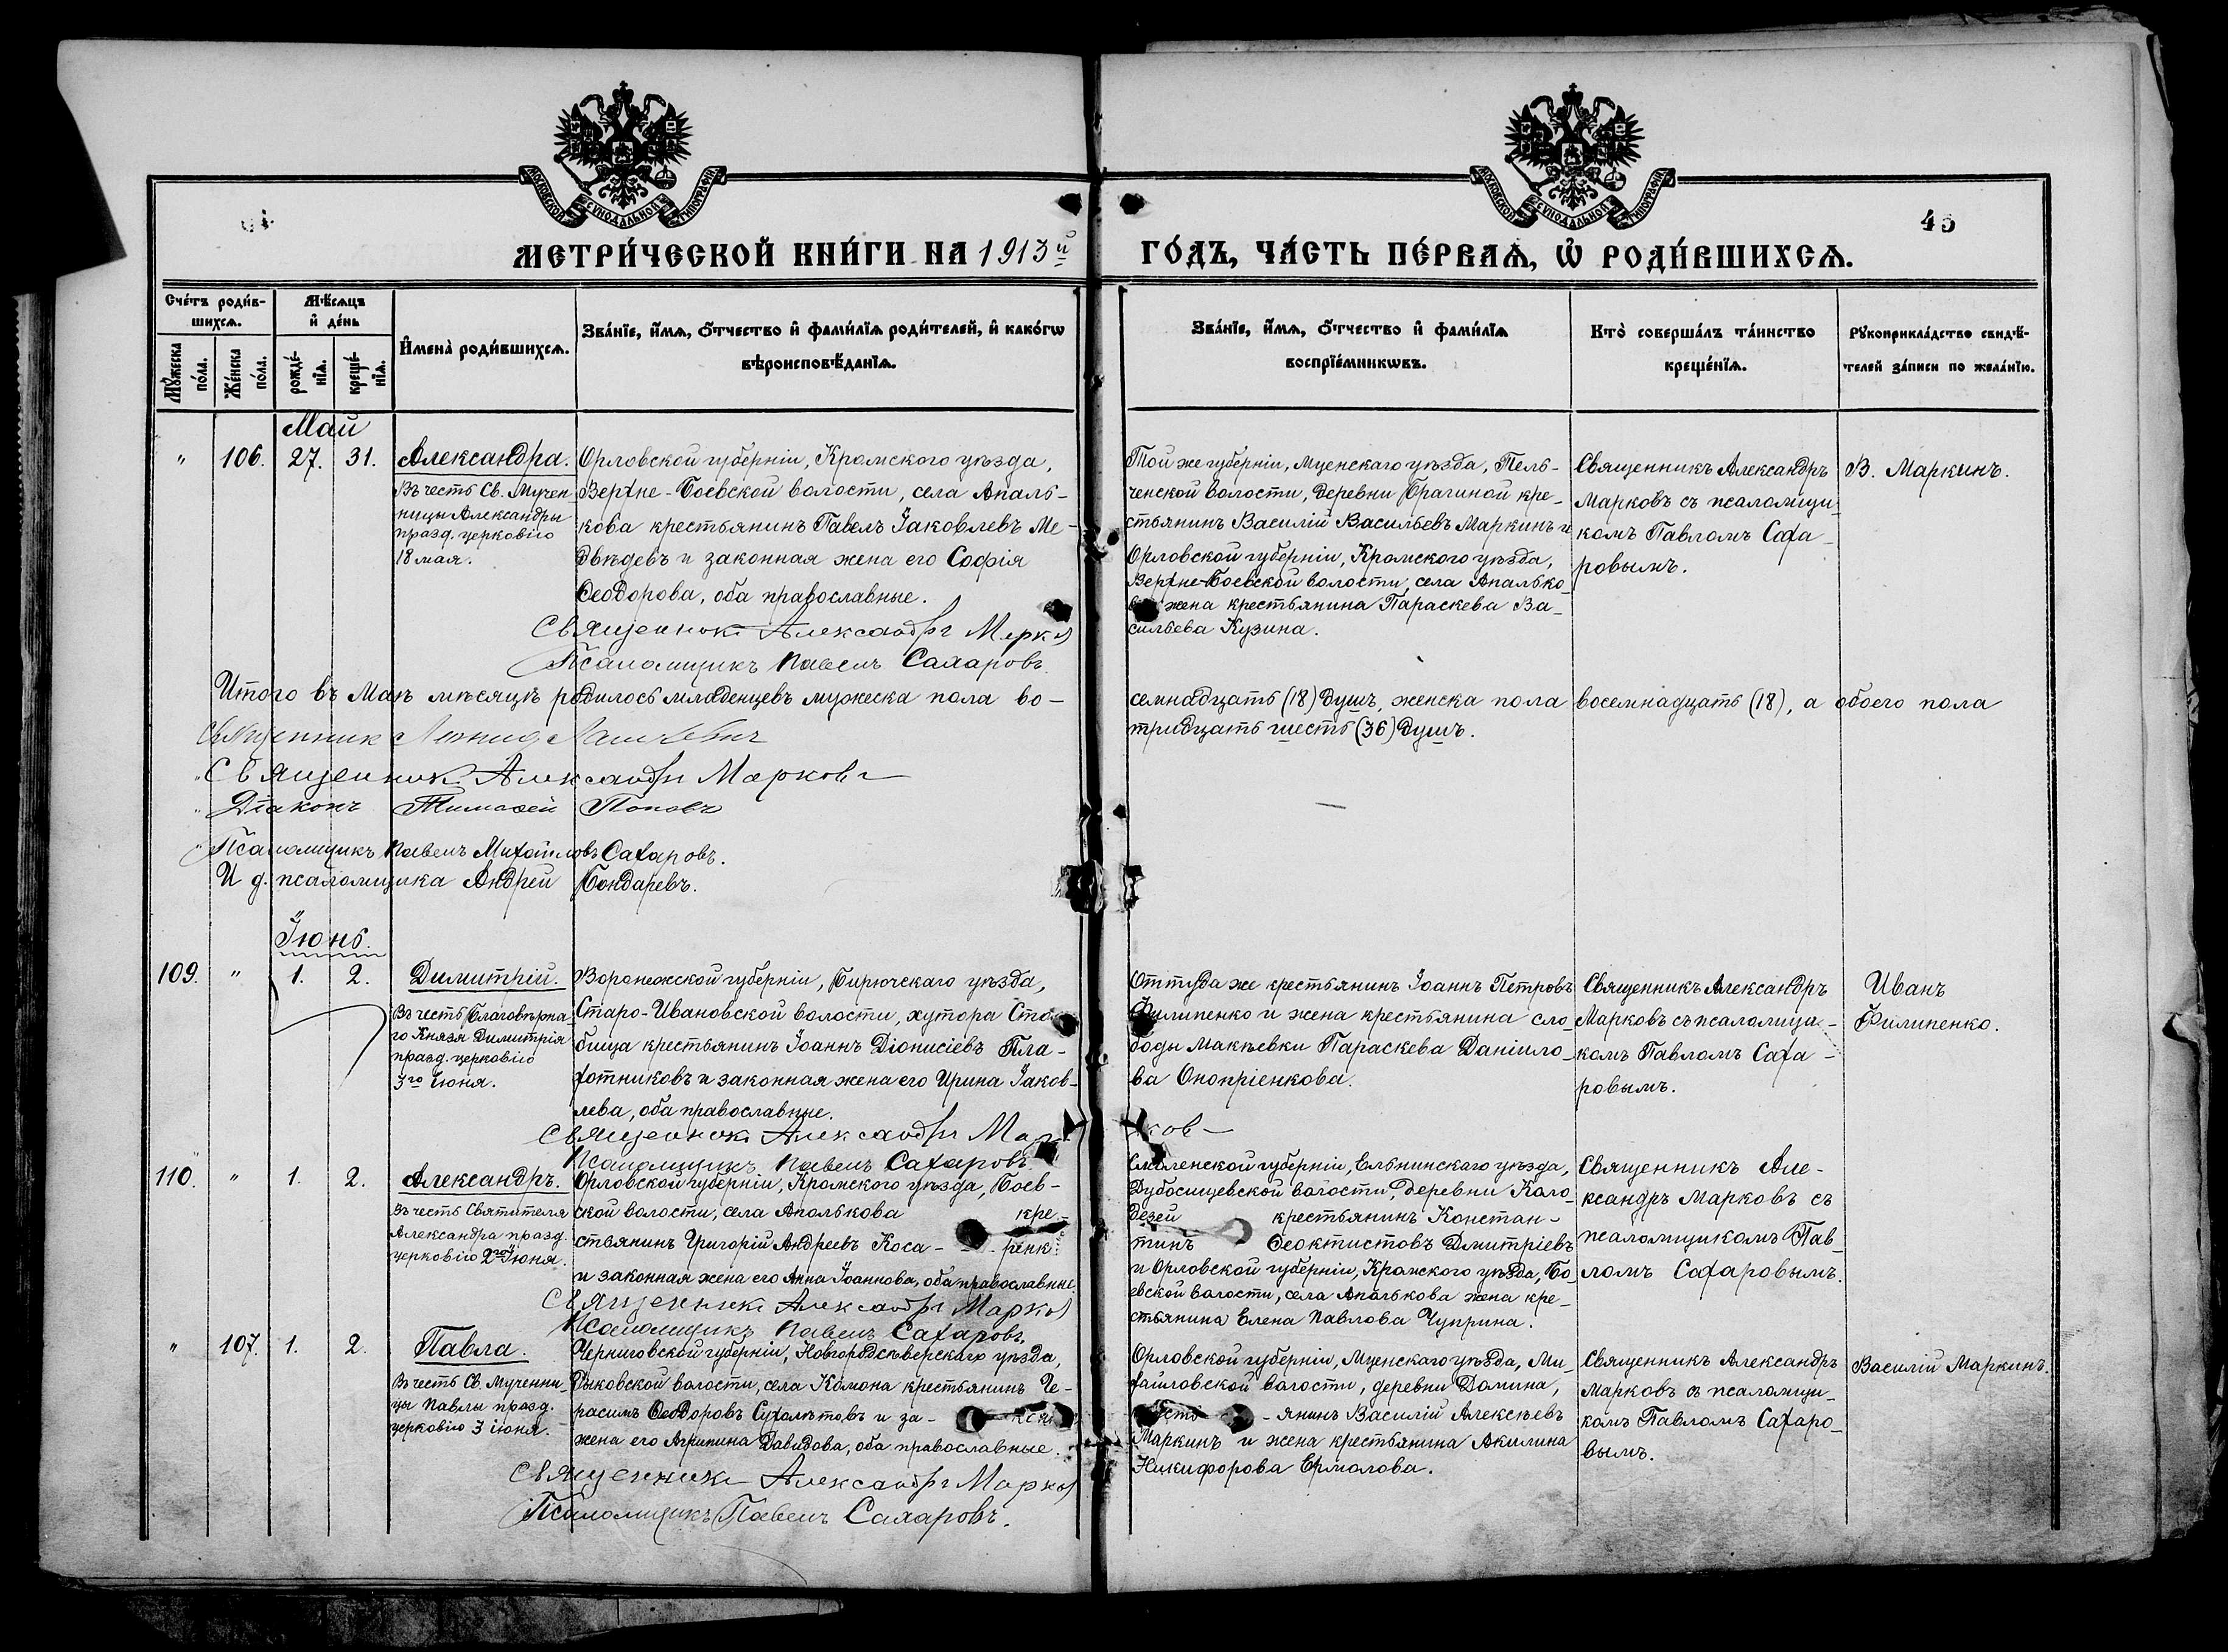 МОСКОВСКОЙ СУНОДАЛЬНОЙ ТИПОГРАФІИ
МОСКОВСКОЙ СУНОДАЛЬНОЙ ТИПОГРАФІИ
45
МЕТРИ́ЧЕСКОЙ КНИ́ГИ НА 1913й ГО́ДЪ, ЧА́СТЬ ПЕ́РВАѦ, Ѡ҆ РОДИ́ВШИХСѦ.
Сче́тъ роди́в-
шихсѧ.
Мꙋ́жеска по́ла.
Же́нска по́ла.
Мѣ́сѧцъ
и҆ де́нь
рожде́-
нїѧ.
креще́-
нїѧ.
И҆мена̀ роди́вшихсѧ.
Зва́нїе, и҆́мѧ, ѻ҆́тчество и҆ фами́лїѧ роди́телей, и҆ како́гѡ
вѣроисповѣ́данїѧ.
Зва́нїе, и҆́мѧ, ѻ҆́тчество и҆ фами́лїѧ
воспрїе́мникѡвъ.
Кто̀ соверша́лъ та́инство
креще́нїѧ.
Рꙋкоприкла́дство свидѣ́-
телей за́писи по жела́нїю.
Май
" 106. 27. 31.
Александра.
Въ честь Св. Мучен
ницы Александры
празд. церковію
18 мая.
Орловской губерніи, Кромского уѣзда,
Верхне-Боевской волости, села Апаль-
кова крестьянинъ Павелъ Іаковлевъ Ме-
двѣдевъ и законная жена его Софія
Ѳеодорова, оба православные.
Священникъ Александръ Марковъ
Псаломщикъ Павелъ Сахаровъ.
Той же губерніи, Мценскаго уѣзда, Тель-
ченской волости, деревни Брагиной кре-
стьянинъ Василій Васильевъ Маркинъ и
Орловской губерніи, Кромского уѣзда,
Верхне-Боевской волости, села Апалько
жена крестьянина Параскева Ва-
сильева Кузина.
Священникъ Александръ
Марковъ съ псаломщи-
комъ Павломъ Саха-
ровымъ.
В. Маркинъ.
Итого въ Маѣ мѣсяцѣ родилось младенцевъ мужеска пола во-
семнадцать (18) душъ, женска пола восемнадцать (18), а обоего пола
тридцать шесть (36) душъ.
Священник Леонид
Священникъ Александръ Марковъ
Діаконъ Тимоѳей Поповъ
Псаломщикъ Павелъ Михайловъ Сахаровъ.
И д. псаломщика Андрей Бондаревъ.
Іюнь.
109. " 1. 2.
Димитрій.
Въ честь Благовѣрна-
го Князя Димитрія
празд. церковію
3го Іюня.
Воронежской губерніи, Бирючскаго уѣзда,
Старо-Ивановской волости, хутора Сто
бища крестьянинъ Іоаннъ Діонисіевъ Пла-
хотниковъ и законная жена его Ирина Іаков-
лева, оба православные.
Священникъ Александръ Марков
Псаломщикъ Павелъ Сахаровъ.
Оттуда же крестьянинъ Іоаннъ Петровъ
Филипенко и жена крестьянина сло-
боды Макѣевки Параскева Даніило-
ва Оноприенкова.
Священникъ Александръ
Марковъ съ псаломщи-
комъ Павломъ Саха-
ровымъ.
Иванъ
Филипенко.
110. " 1. 2.
Александръ.
Въ честь Святителя
Александра празд.
церковію 2го Іюня.
Орловской губерніи, Кромского уѣзда, Боев-
ской волости, села Апалькова кре-
стьянинъ Григорій Андреевъ Коса- ренк
и законная жена его Анна Іоаннова, оба православные.
Священникъ Александръ Марковъ
Псаломщикъ Павелъ Сахаровъ.
Смоленской губерніи, Ельнинскаго уѣзда,
Дубосищевской волости, деревни Коло-
дезей крестьянинъ Констан-
тинъ Ѳеоктистовъ Дмитріевъ
и Орловской губерніи, Кромского уѣзда, Бо-
евской волости, села Апалькова жена кре-
стьянина Елена Павлова Чуприна.
Священникъ Але-
ксандръ Марковъ съ
псаломщикомъ Пав-
ломъ Сахаровымъ.
" 107. 1. 2.
Павла.
Въ честь Св. Мучени-
цы Павлы празд.
церковію 3 іюня.
Черниговской губерніи, Новгородсѣверскаго уѣзда,
Дыковской волости, села Комона крестьянинъ Ге-
расимъ Ѳеодоровъ Сухомѣтовъ и за-
жена его Агрипина Давидова, оба православные.
Священникъ Александръ Марковъ
Псаломщикъ Павелъ Сахаровъ.
Орловской губерніи, Мценскаго уѣзда, Ми
хайловской волости, деревни Домина,
-янинъ Василій Алексѣевъ
Маркинъ и жена крестьянина Акилина
Никифорова Ермолова.
Священникъ Александръ
Марковъ съ псаломщи-
комъ Павломъ Сахаро-
вымъ.
Василій Маркинъ.